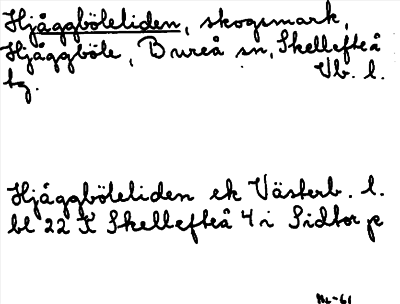 Hjåggböleliden, skogsmark,
Hjåggböle, Bureå sn, Skellefteå
tg. Vb. l.
Hjåggböleliden ek Västerb. l.
bl 22 K Skellefteå 4 i Sidtor p